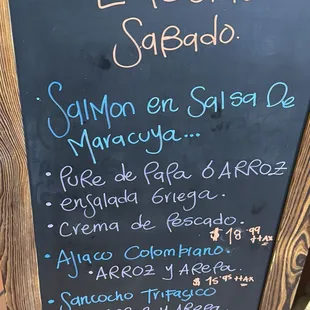 Sabado.
· Salmon en Salsa De
Maracuya...
· Pure de Papa ó ARROZ
· ensalada Griega.
· Crema de Pescado.
$ 18.99 +tAX
· Ajiaco Colombiano.
· ARROZ y Arepa.
$ 15.95 +tAX
· Sancocho Trifasico
y Arepa